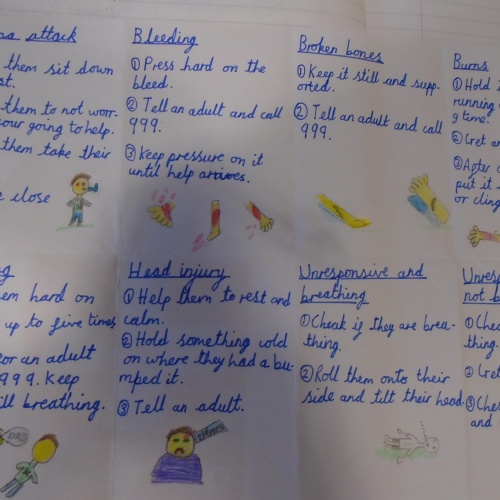 attack
them sit down
st.
them to not worr-
your going to help.
them take their
close
Bleeding
① Press hard on the
bleed.
② Tell an adult and call
999.
③ Keep pressure on it
until help arrives.
Broken bones
① Keep it still and supp-
orted.
② Tell an adult and call
999.
Burns
① Hold
running
g time.
② Get an
③ After
put it
or cling
em hard on
up to five times
or an adult
999. Keep
ill breathing.
Head injury
① Help them to rest and
calm.
② Hold something cold
on where they had a bu-
mped it.
③ Tell an adult.
Unresponsive and
breathing
① Check if they are brea-
thing.
② Roll them onto their
side and tilt their head.
Unresp
not b
① Chec
thing.
② Get
③ Che
and